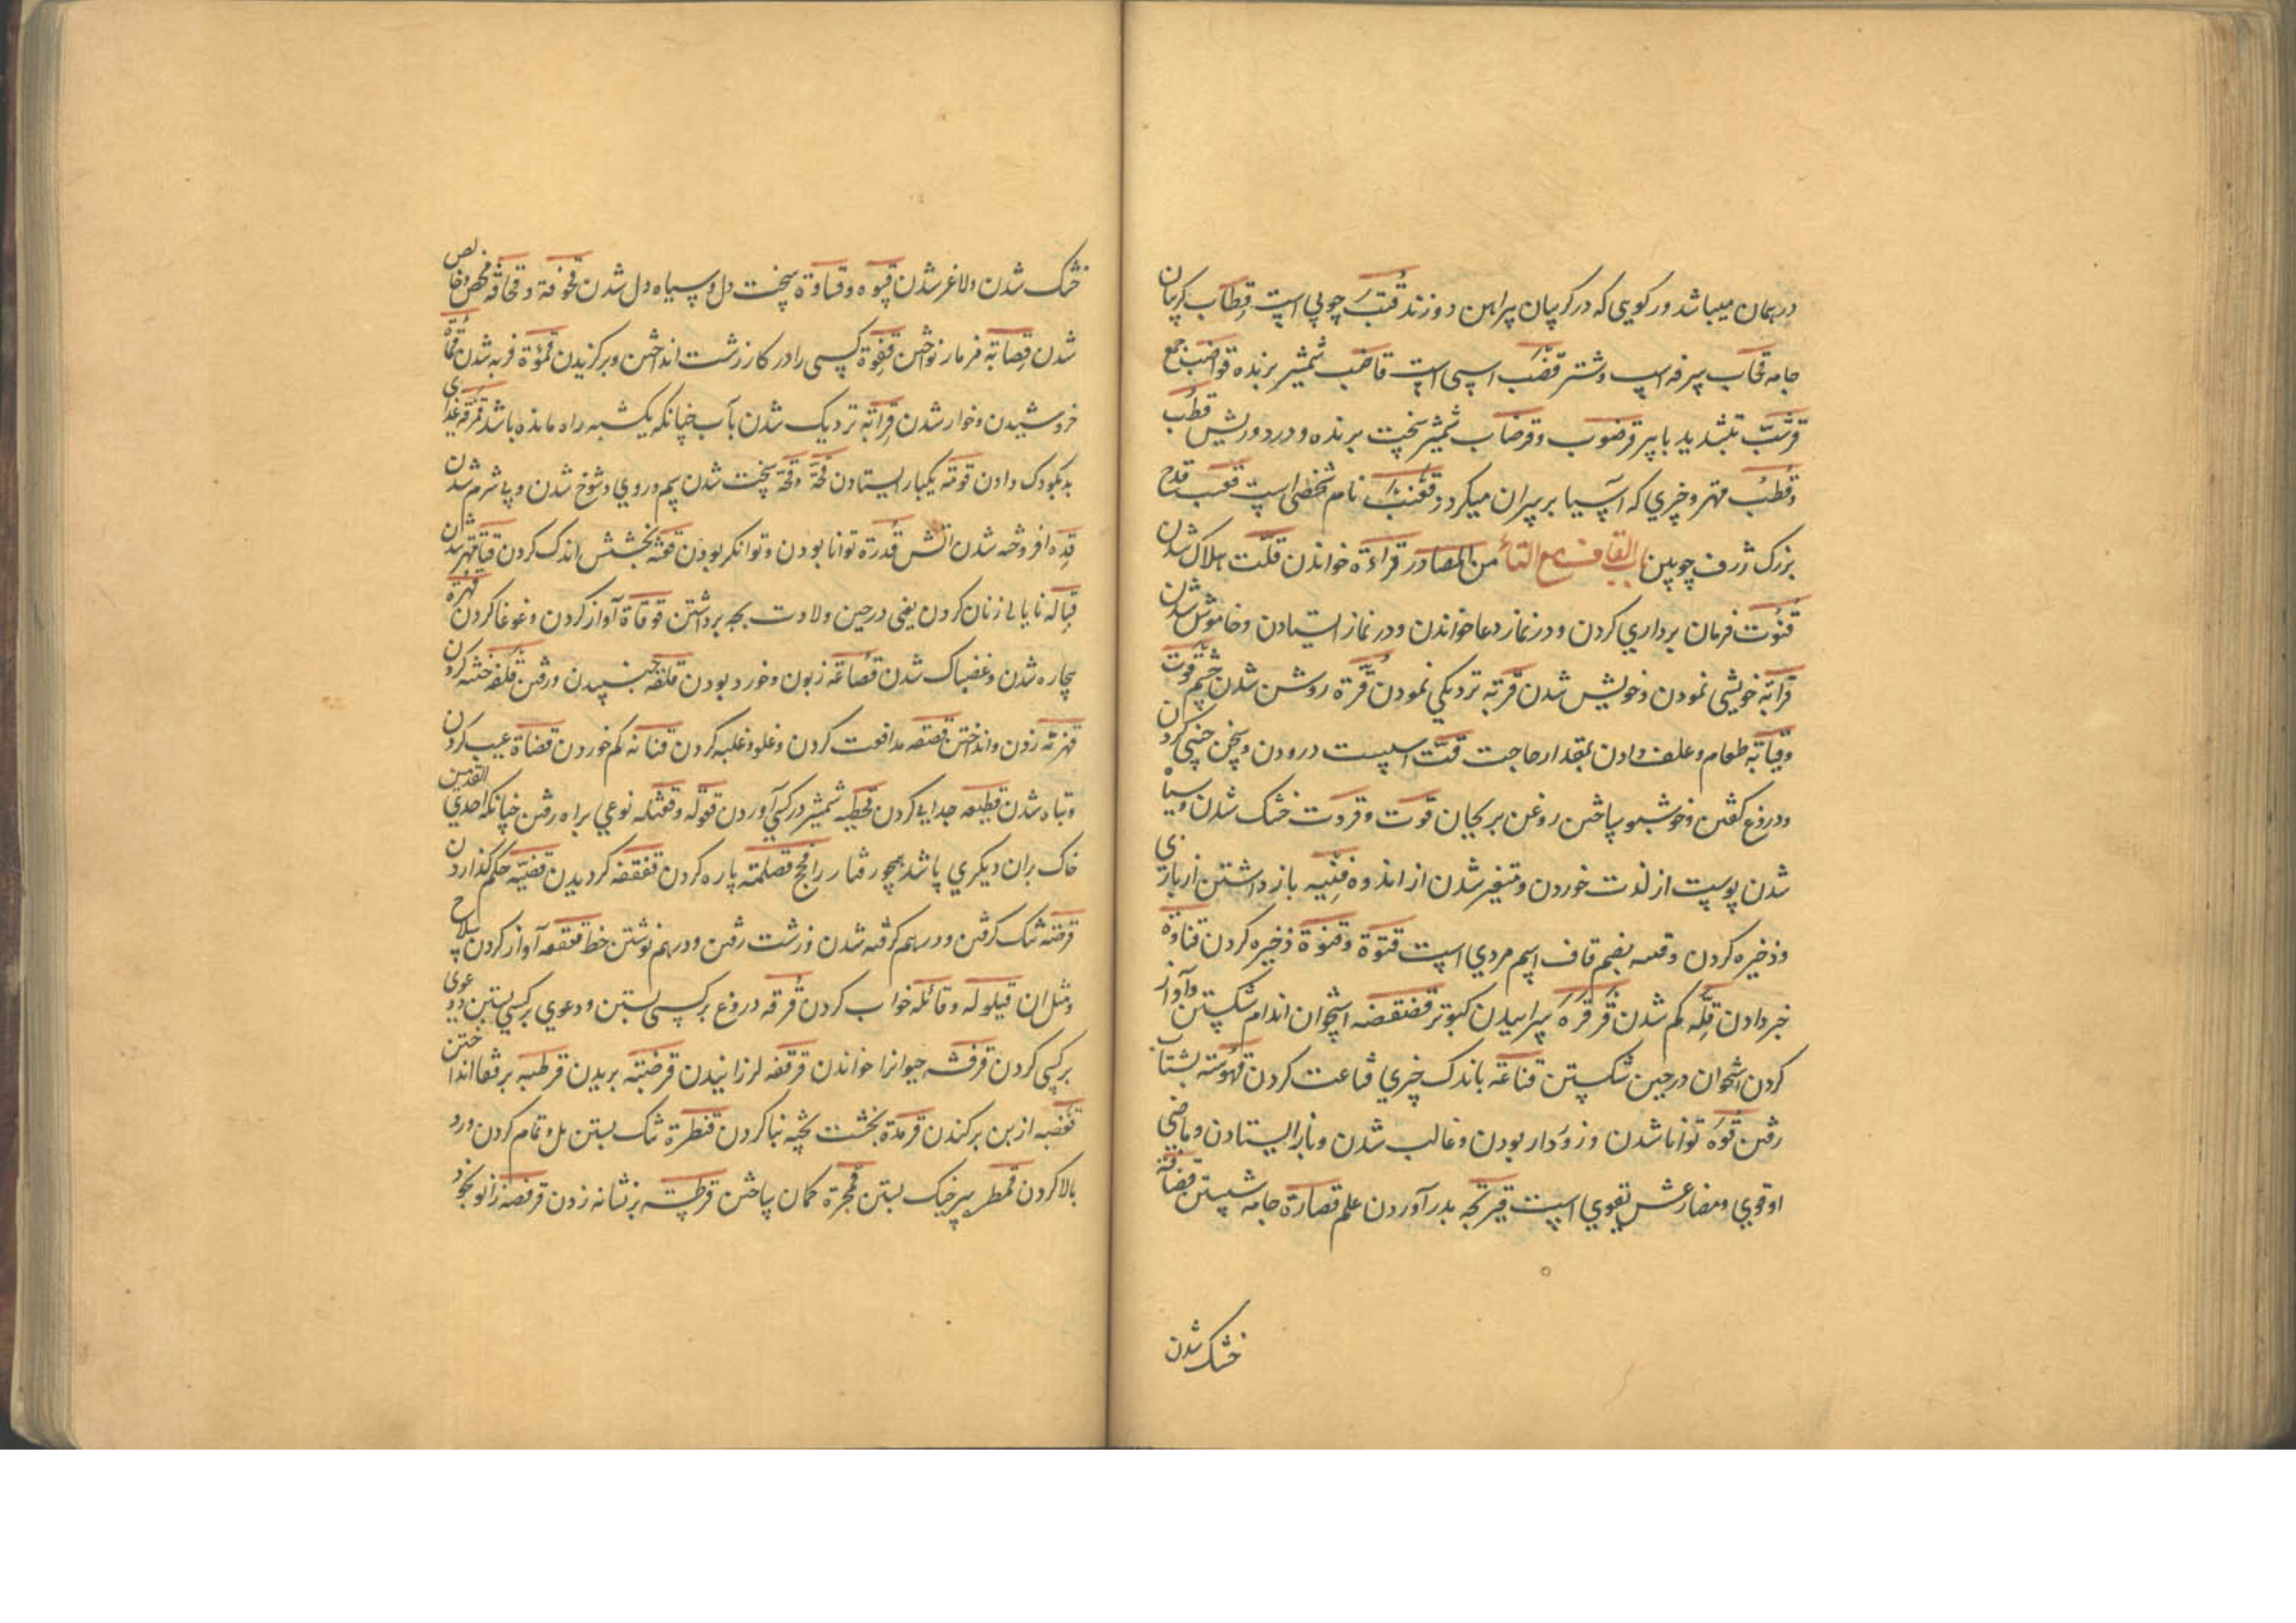 درهمان میباشد ورکویی که درکریبان پیراهن دوزند قتب چوبی است قطاب کریبان
جامه قحاب سرفه اسب وشتر قضب اسبی است قاضب شمشیر برنده قواضب جمع
قرشب بتشدید با پیر قرضوب وقرضاب شمشیر سخت برنده ودرد وریش قطب
وقطب مهتر وچیزی که آسیا بر سران میکردد قعنب نام شخصی است قعب قدح
بزرک ژرف چوبین باب القاف مع التاء من المصادر قراءة خواندن قلت هلاک شدن
قنوت فرمان برداری کردن ودرنماز دعا خواندن ودر نماز ایستادن وخاموش شدن
قرابة خویشی نمودن وخویش شدن قربة نزدیکی نمودن قرة روشن شدن چشم قوت
وقیاتة طعام وعلف دادن بمقدار حاجت قت اسپست درودن وسخن چینی کردن
ودروغ کفتن وخوشبو ساختن روغن بریحان قوت وقردت خشک شدن وسیاه
شدن پوست از لذت خوردن ومتغیر شدن از اندوه قنیه باز داشتن از بازی
وذخیره کردن وقسه بضم قاف اسم مردی است قنوة وقنوة ذخیره کردن قناوة
خبر دادن قله کم شدن قرقرة سراییدن کبوتر قضقضه استخوان اندام شکستن وآواز
کردن استخوان درحین شکستن قناعة باندک چیزی قناعت کردن قهوسة بشتاب
رفتن قوة توانا شدن وزوردار بودن وغالب شدن وبازایستادن وماضی
او قوی ومضارعش یقوی است قیر تجه بدر آوردن علم قصارة جامه شستن قضافة
خشک شدن
خشک شدن ولاغر شدن قسوه وقساوة سخت دل وسیاه دل شدن قحوفة وقحافة محض وخالص
شدن قصابة فرمار نواختن قفوة کسی را در کار زشت انداختن وبرکزیدن قموة فربه شدن قماة
خروشیدن وخوار شدن قرابة نزدیک شدن بآب چنانکه یکشبه راه مانده باشد قرقه غذای
بد بکودک دادن قومة یکبار ایستادن قحة وقحة سخت شدن سم وروی وشوخ شدن وبیشرم شدن
قده افروخته شدن آتش قدرة توانا بودن وتوانکر بودن قعثه بخشش اندک کردن
قباله نایایی زنان کردن یعنی درحین ولادت بچه برداشتن قوقاة آواز کردن وغوغا کردن قهرة
بیچاره شدن وغضبناک شدن قصاعة زبون وخورد بودن قلقه جنبیدن ورفتن قلفه ختنه کردن
قهزنه زدن وانداختن قصقصه مدافعت کردن وغلو وغلبه کردن قتانة کم خوردن قضاة عیب کردن
وتباه شدن قطیعه جدایی کردن قحطبه شمشیر در کسی آوردن قعوله وقعثله نوعی براه رفتن چنانکه احدی القدمین
خاک بران دیکری پاشد همچو رفتار رافج قصلمة پاره کردن قفقفه کردیدن قضیه حکم کذاردن
قرمته تنک کرفتن ودرهم کرفته شدن وزشت رفتن ودرهم نوشتن خط قعقعه آواز کردن سلاح
ومثل ان قیلوله وقائله خواب کردن قرقه دروغ بر کسی بستن ودعوی برکسی بستن
برکسی کردن قرفشه حیوانرا خواندن قرقفه لرزانیدن قرضبة بریدن قرطبه برقفا انداختن
قعضبه از بن برکندن قرمدة بخشت پخته بنا کردن قنطرة تنک بستن پل وتمام کردن ورد
بالا کردن قمطر سرخیک بستن قمجرة کمان ساختن قرطسه برنشانه زدن قرفصه زانو بخود